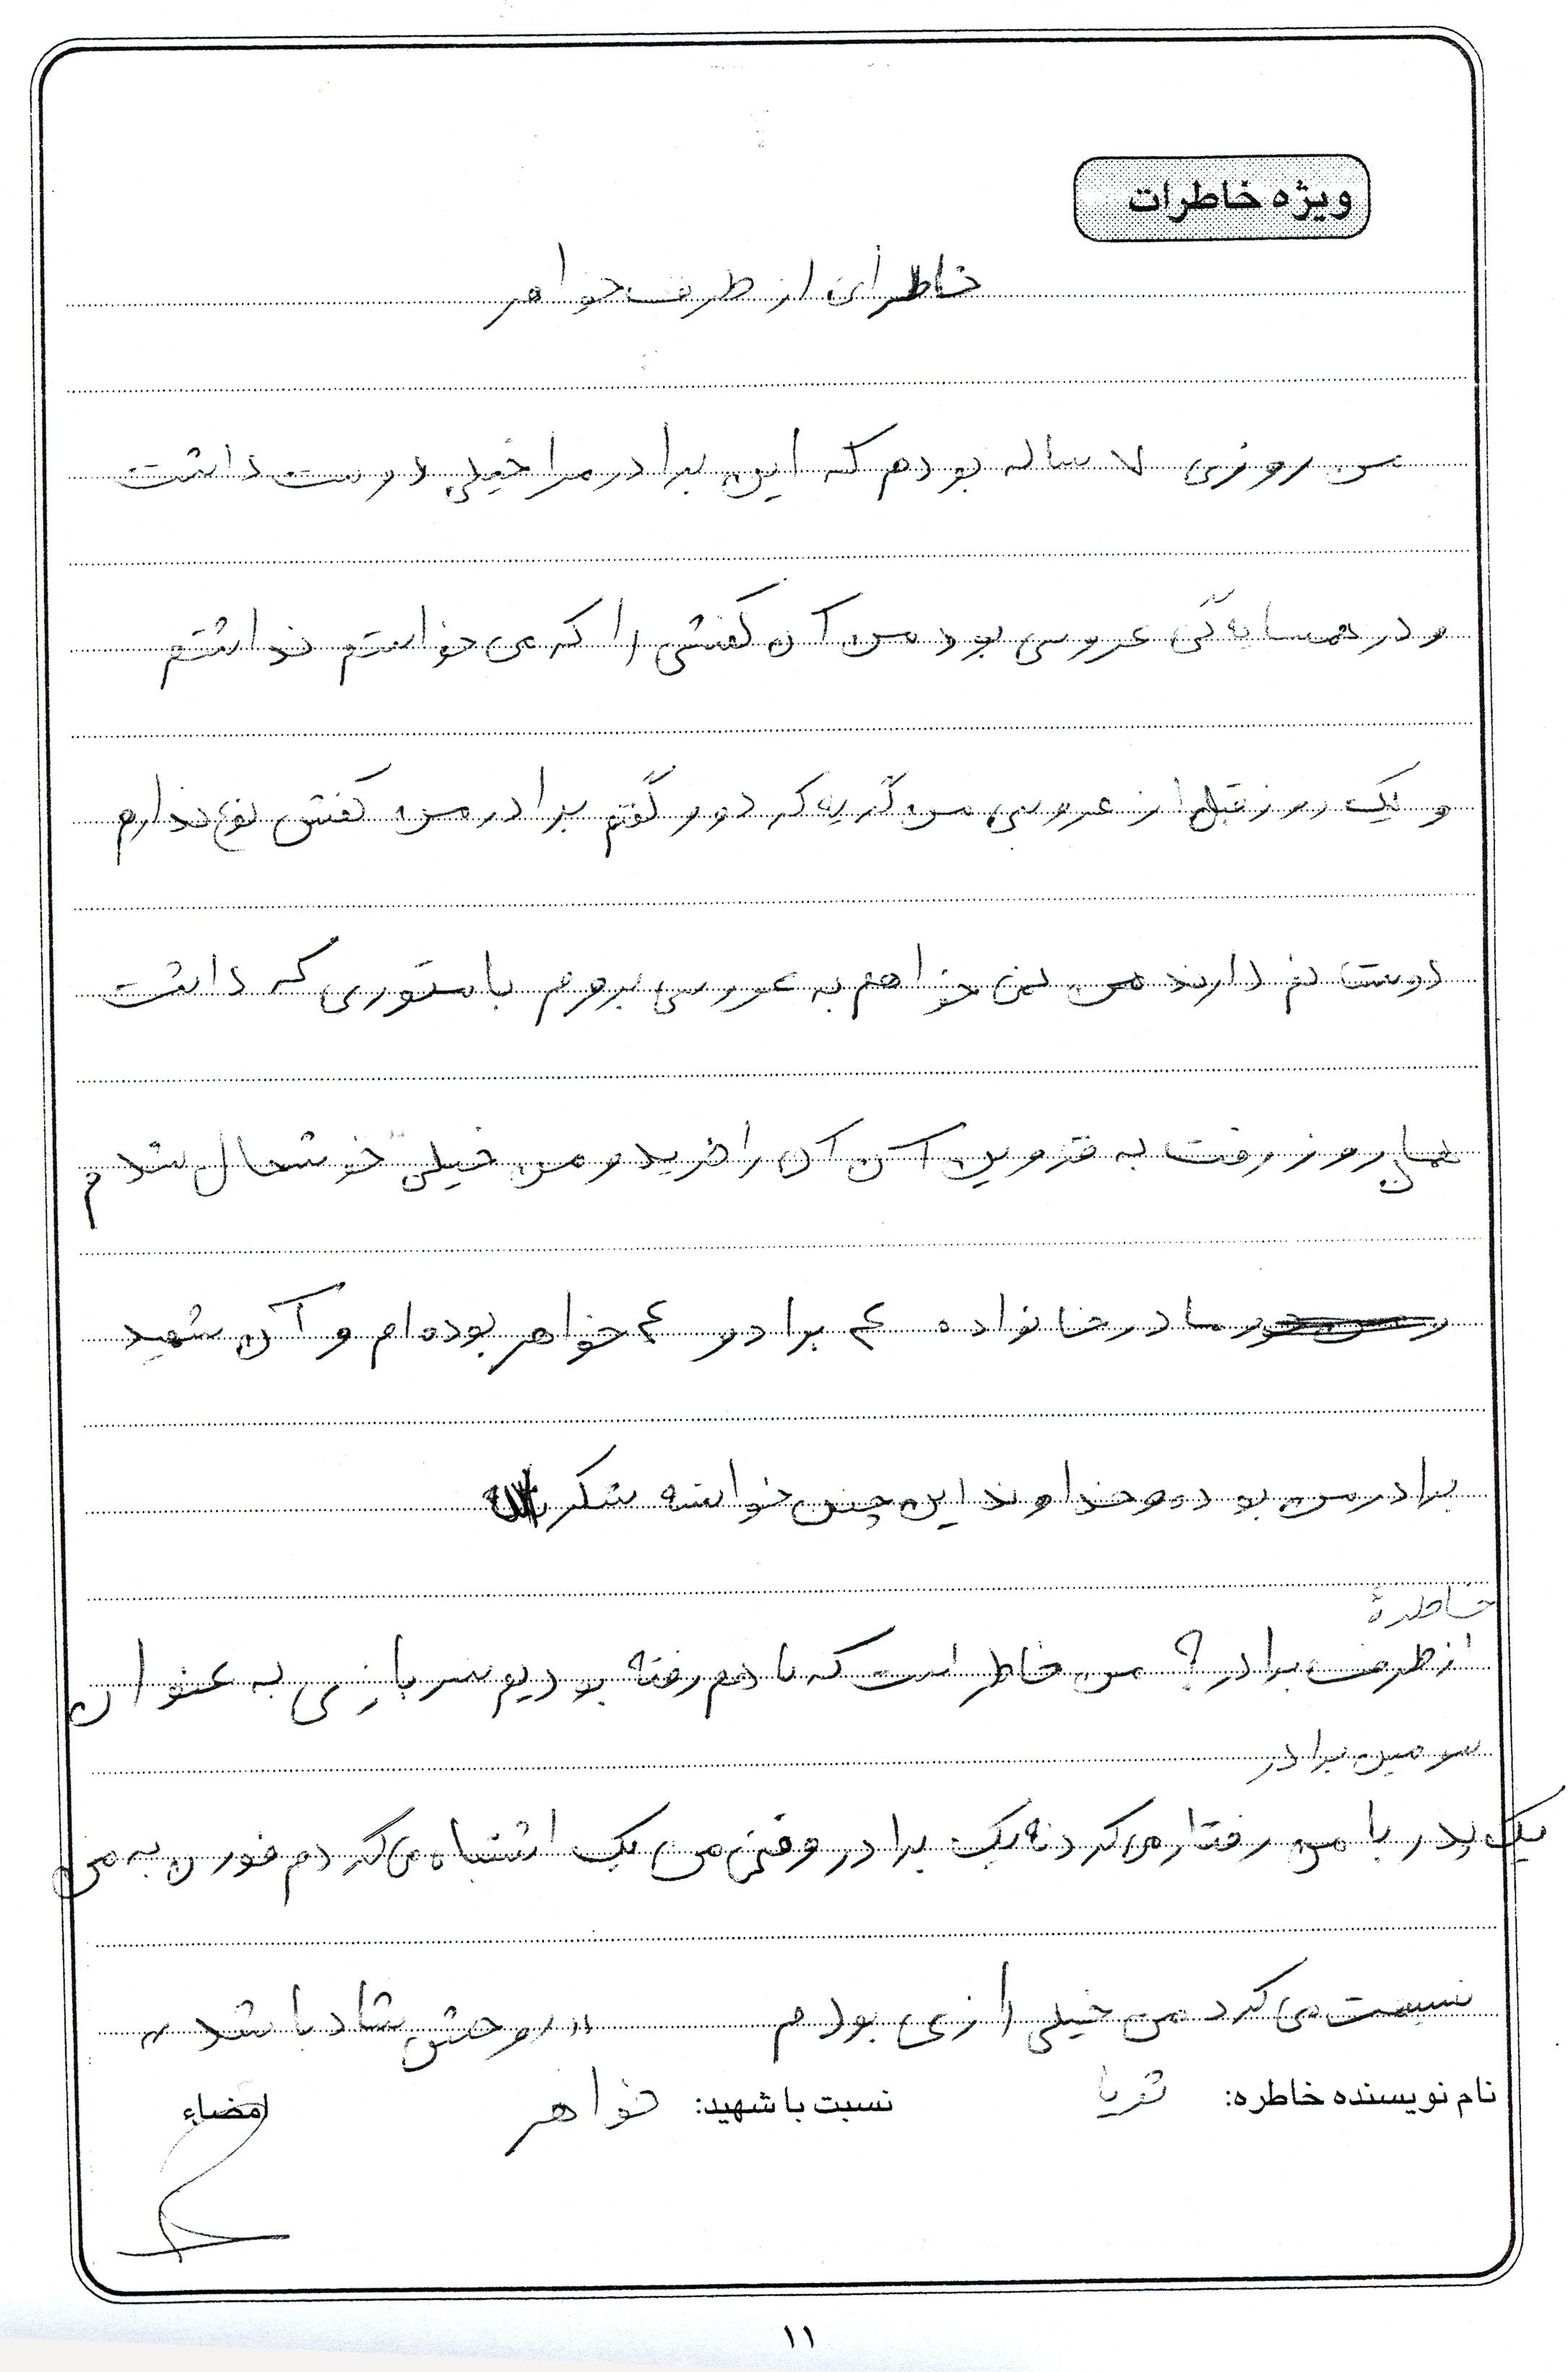 ویژه خاطرات
خاطرای از طرف خواهر
من روزی ۷ ساله بودم که این برادر مرا خیلی دوست داشت
و در همسایه‌گی عروسی بود من آن کفشی را که می خواستم نداشتم
و یک روز قبل از عروسی من گریه کردو و گفتم برادر من کفش نوع ندارم
دوستانم دارند من نمی خواهم به عروسی بروم با ستوری که داشت
همان روز رفت به قزوین آن را خرید و من خیلی خوشحال شدم
ما در خانواده ۴ برادر و ۴ خواهر بوده‌ام و آن شهید
برادر من بوده و خداوند این چنین خواسته شکر
خاطرهٔ
از طرف برادر؟ من خاطر است که با هم رفته بودیم سربازی به عنوان
سومین برادر
یک پدر با من رفتار می کرد نه یک برادر وقتی من یک اشتباه می کردم فورن به من
نسیهت می کرد من خیلی رازی بودم « روحش شاد باشد »
نام نویسنده خاطره: ثریا نسبت با شهید: خواهر امضاء
۱۱